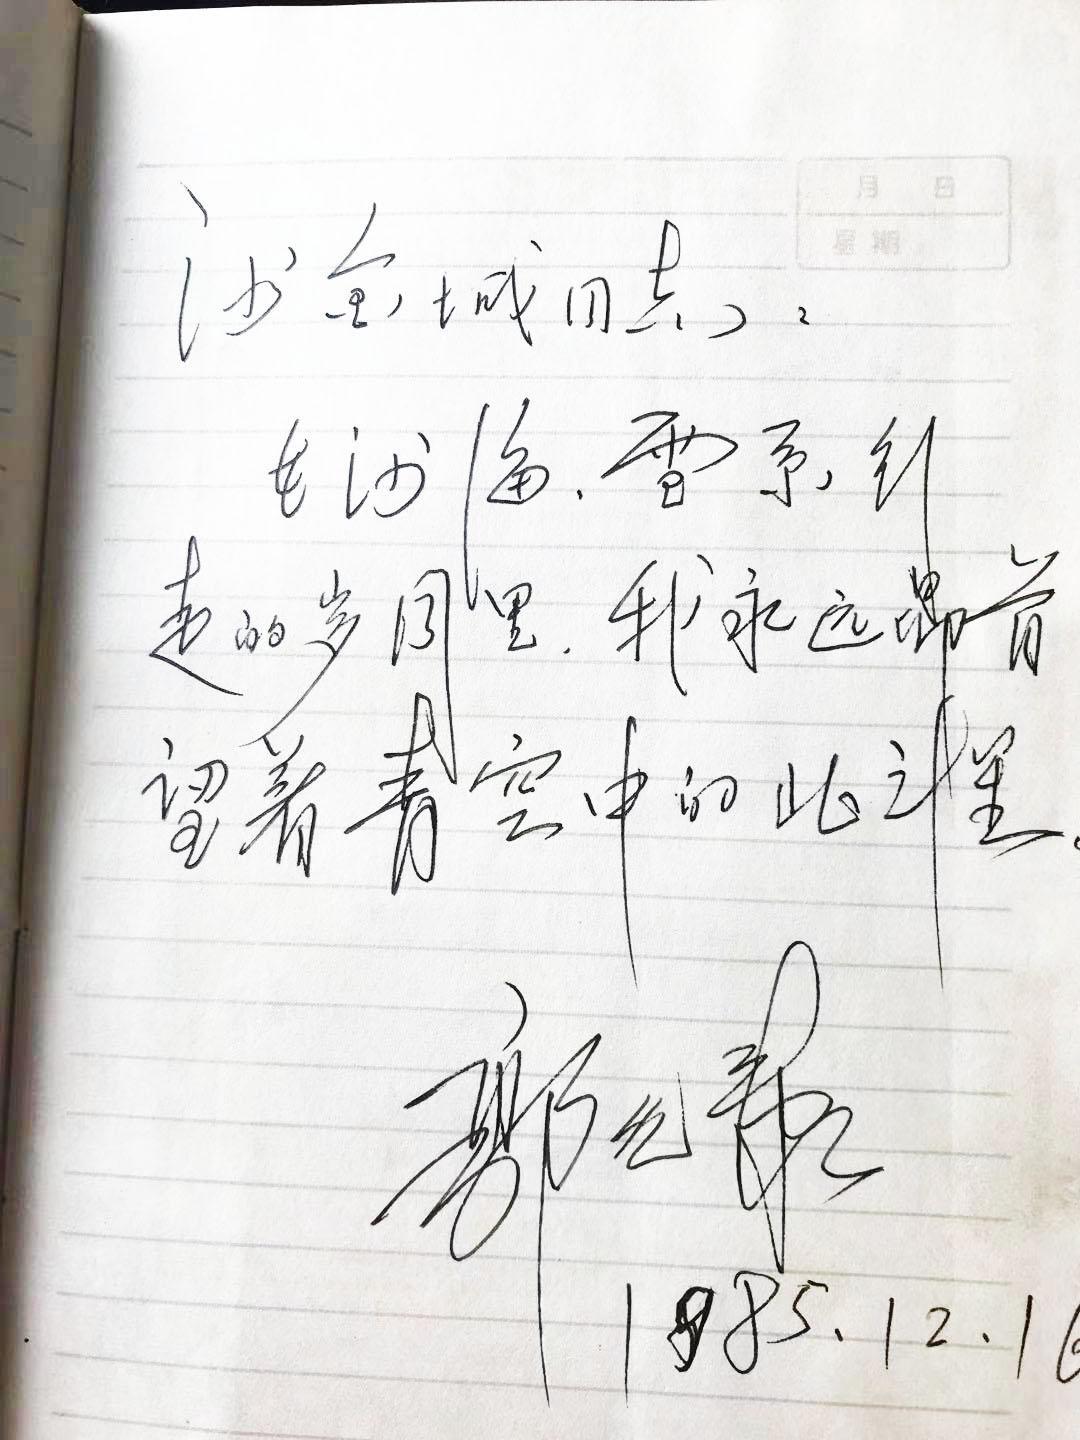 月 日
星期
沙金城同志:
在沙海、雪原行
走的岁月里,我永远昂首
望着青空中的北斗星。
郭
1985.12.16